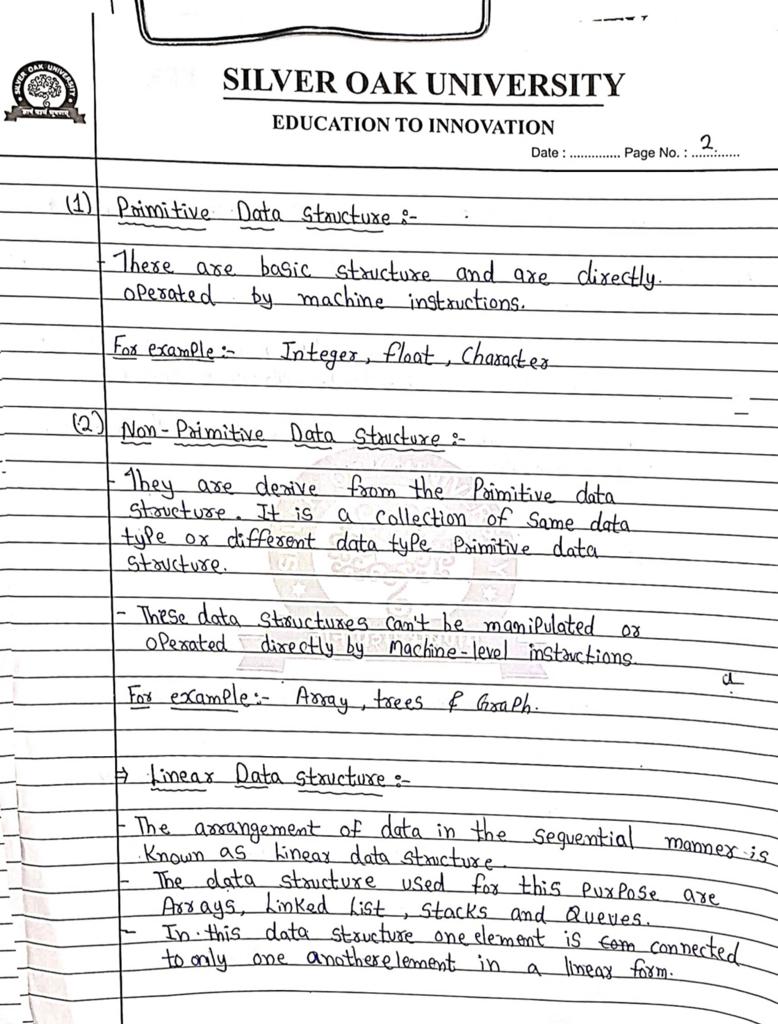 SILVER OAK UNIVERSITY
SILVER OAK UNIVERSITY
EDUCATION TO INNOVATION
Date : .............. Page No. : 2
(1) Primitive Data Structure :-
- There are basic structure and are directly.
operated by machine instructions.
For example :- Integer, float, Character
(2) Non-Primitive Data Structure :-
- They are derive from the Primitive data
structure. It is a collection of same data
type or different data type Primitive data
structure.
- These data structures can't be manipulated or
operated directly by machine-level instructions.
For example:- Array, trees & Graph.
⇒ Linear Data structure :-
- The arrangement of data in the sequential manner is
known as linear data structure.
- The data structure used for this purpose are
Arrays, Linked List, Stacks and Queues.
- In this data structure one element is com connected
to only one another element in a linear form.